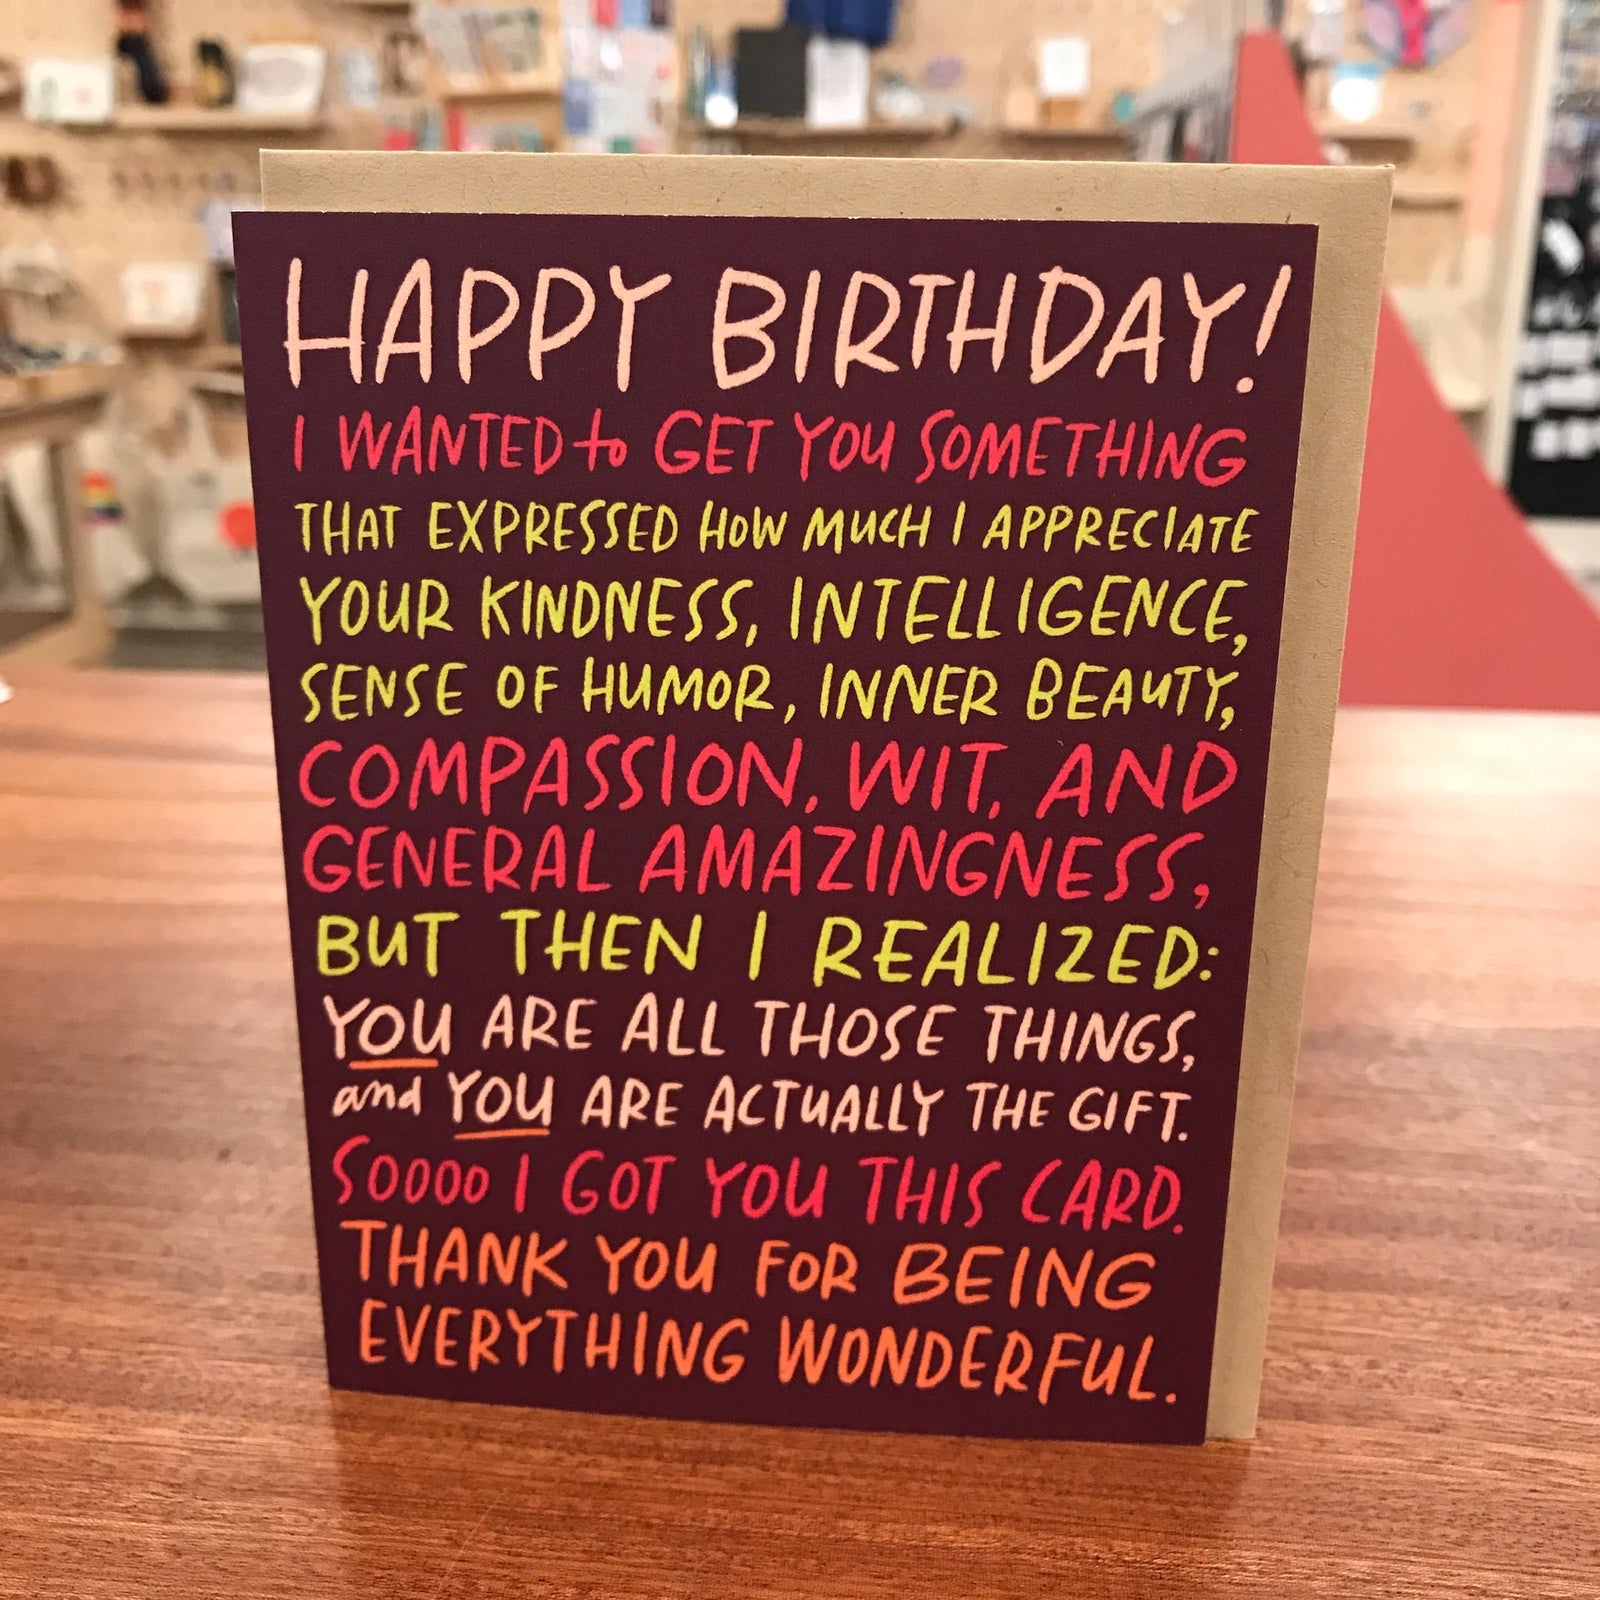 HAPPY BIRTHDAY!
I WANTED to GET YOU SOMETHING
THAT EXPRESSED HOW MUCH I APPRECIATE
YOUR KINDNESS, INTELLIGENCE,
SENSE OF HUMOR, INNER BEAUTY,
COMPASSION, WIT, AND
GENERAL AMAZINGNESS,
BUT THEN I REALIZED:
YOU ARE ALL THOSE THINGS,
and YOU ARE ACTUALLY THE GIFT.
SOOOO I GOT YOU THIS CARD.
THANK YOU FOR BEING
EVERYTHING WONDERFUL.